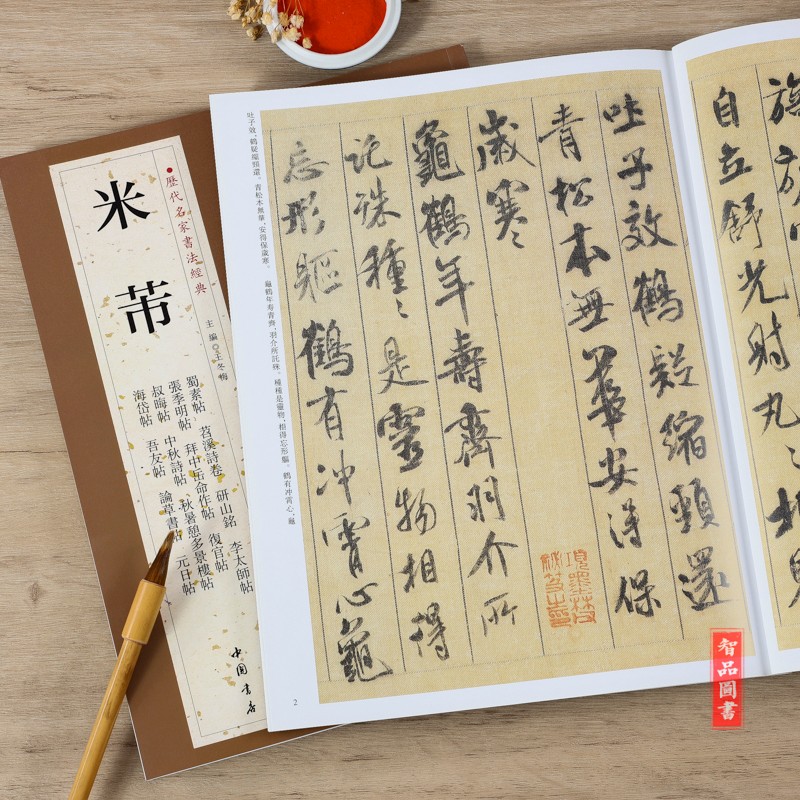 歷代名家書法經典
米芾
主編◎王冬梅
蜀素帖 苕溪詩卷 研山銘 李太師帖
張季明帖 拜中岳命作帖 復官帖
叔晦帖 中秋詩帖 秋暑憩多景樓帖
海岱帖 吾友帖 論草書帖 元日帖
中国书店
自立舒光射丸〻柏見
吐子效鶴疑縮頸還
青松本無華安得保
歲寒〻
龜鶴年壽齊羽介所
託殊種〻是靈物相得
忘形軀鶴有冲霄心龜
吐子效,鶴疑縮頸還。青松本無華,安得保歲寒。 龜鶴年壽齊,羽介所託殊。種種是靈物,相得忘形軀。鶴有冲霄心,龜
2
智品圖書